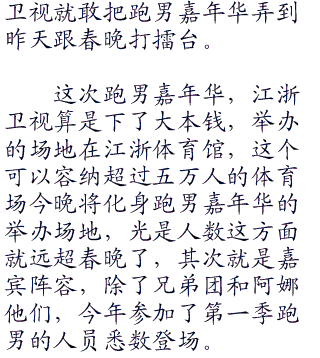 卫视就敢把跑男嘉年华弄到
昨天跟春晚打擂台。
这次跑男嘉年华，江浙
卫视算是下了大本钱，举办
的场地在江浙体育馆，这个
可以容纳超过五万人的体育
场今晚将化身跑男嘉年华的
举办场地，光是人数这方面
就远超春晚了，其次就是嘉
宾阵容，除了兄弟团和阿娜
他们，今年参加了第一季跑
男的人员悉数登场。